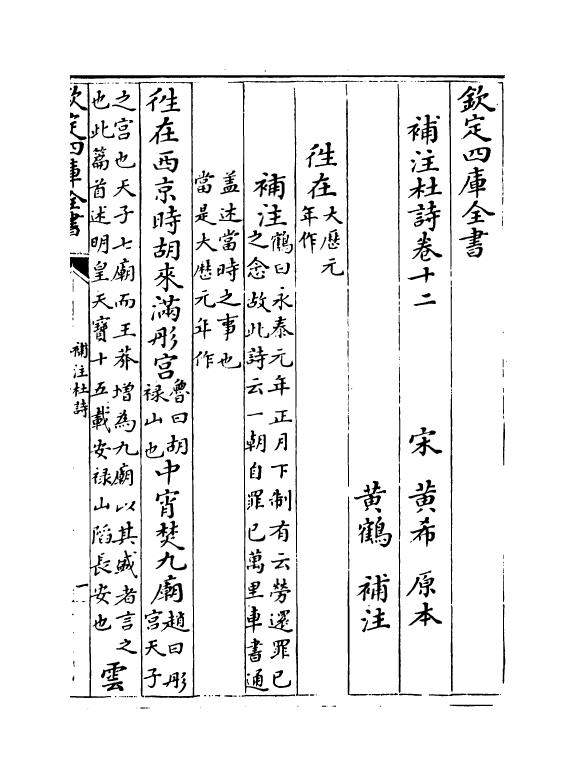 欽定四庫全書
補注杜詩卷十二
宋 黄希 原本
黄鶴 補注
徃在大厯元
年作
補注鶴曰永泰元年正月下制有云勞還罪已
之念故此詩云一朝自罪已萬里車書通
盖述當時之事也
當是大厯元年作
徃在西京時胡來滿彤宫魯曰胡
禄山也中宵焚九廟趙曰彤
宫天子
之宫也天子七廟而王莽增為九廟以其盛者言之
也此篇首述明皇天寳十五載安禄山陷長安也雲
欽定四庫全書
補注杜詩
一